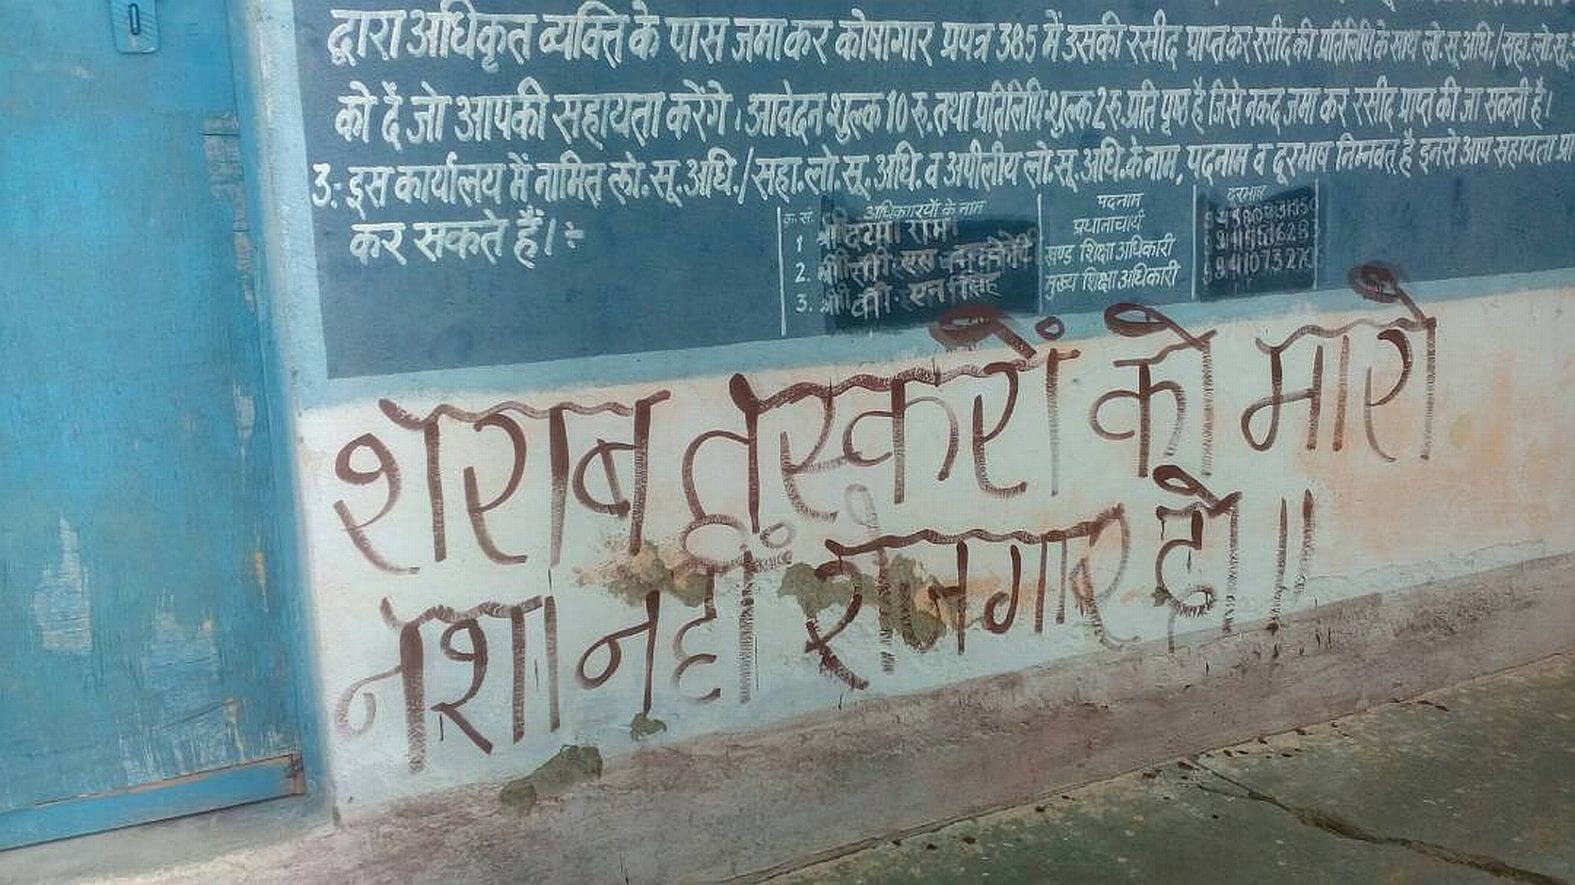 द्वारा अधिकृत व्यक्ति के पास जमा कर कोषागार प्रपत्र 385 में उसकी रसीद प्राप्त कर रसीद की प्रतिलिपि के साथ लो.सू.अधि./सहा.लो.सू.
को दें जो आपकी सहायता करेंगे। आवेदन शुल्क 10 रु. तथा प्रतिलिपि शुल्क 2 रु. प्रति पृष्ठ है जिसे नकद जमा कर रसीद प्राप्त की जा सकती है।
3:- इस कार्यालय में नामित लो.सू.अधि./सहा.लो.सू.अधि. व अपीलीय लो.सू.अधि. के नाम, पदनाम व दूरभाष निम्नवत् है इनसे आप सहायता
कर सकते हैं।:-
क्र.सं. अधिकारियों के नाम पदनाम दूरभाष
1 श्री प्रधानाचार्य
2. खण्ड शिक्षा अधिकारी
3. मुख्य शिक्षा अधिकारी
शराब तस्करों को मारो
नशा नहीं रोजगार दो॥